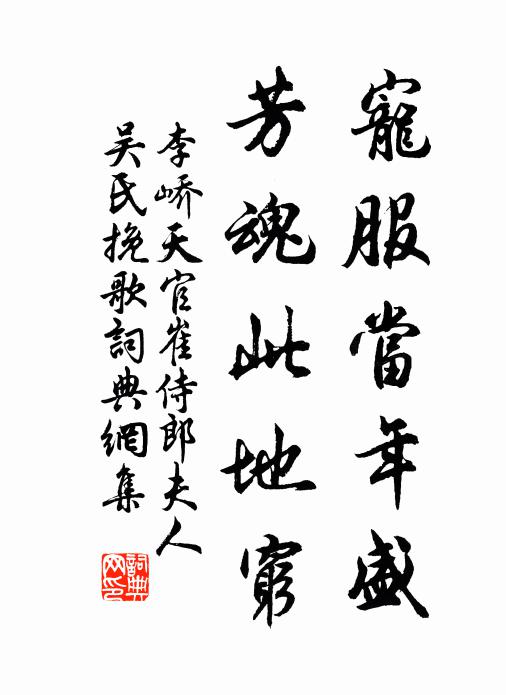 寵服當年盛
芳魂此地窮
李嶠天官崔侍郎夫人
吳氏挽歌詞典網集
詞典
网印